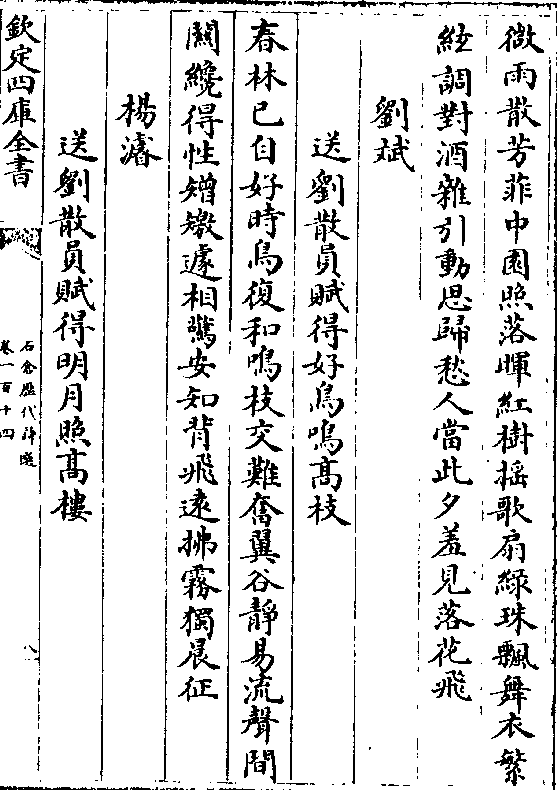 微雨散芳菲中園照落暉紅樹揺歌扇緑珠飄舞衣繁
絃調對酒雜引動思歸愁人當此夕羞見落花飛
劉斌
送劉散員賦得好鳥鳴髙枝
春林已自好時鳥復和鳴枝交難奮翼谷静易流聲間
闗纔得性矰繳遽相驚安知背飛逺拂霧獨晨征
楊濬
送劉散員賦得明月照髙樓
欽定四庫全書
石倉歴代詩選
卷一百十四
八